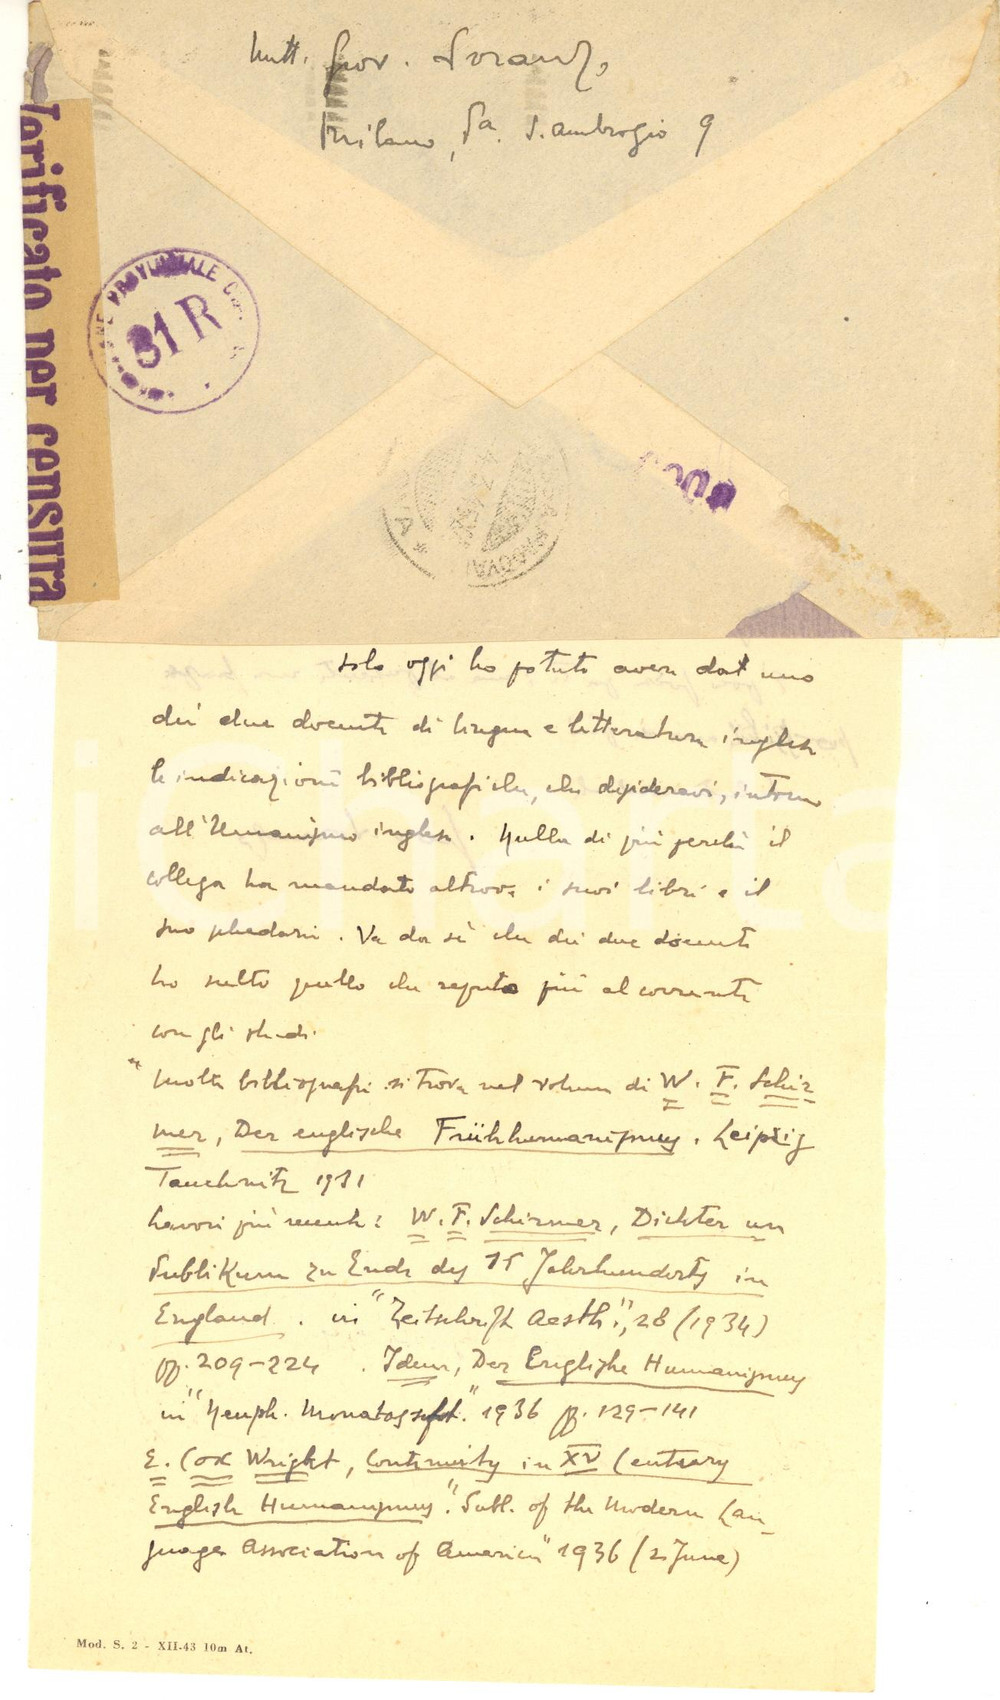 Mitt. Giov. Soranzo
Milano, Pa. S. Ambrogio 9
Verificato per censura
PROVINCIALE
31 R
solo oggi ho potuto avere dal uno
dei due docenti di lingua e letteratura inglese
le indicazioni bibliografiche, che desideravi, intorno
all'Umanesimo inglese. Nulla di più perchè il
collega ha mandato altrove i suoi libri e il
suo schedario. Va da sè che dei due docenti
ho scelto quello che reputo più al corrente
con gli studi.
"Molta bibliografi si trova nel volume di W. F. Schir
mer, Der englische Frühhumanismus. Leipzig
Tauchnitz 1931
Lavori più recenti: W. F. Schirmer, Dichter un
Publikum zu Ende des 15 Jahrhunderts in
England. in "Zeitschrift Aesth.", 28 (1934)
pp. 209-224. Idem, Der Englishe Humanismus
in "Neuph. Monatosschft." 1936 pp. 129-141
E. Cox Wright, Continuity in XV Centuary
English Humanismus. "Publ. of the Modern Lan-
guage Association of America" 1936 (2 June)
Mod. S. 2 - XII-43 10m At.